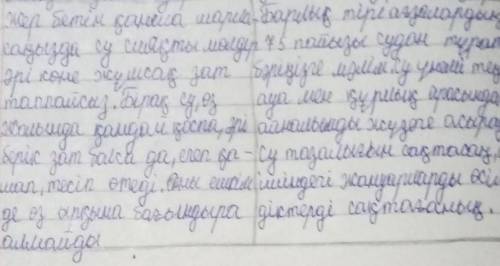 жер бетін қанша шарла-
саңызда су сияқты мөлдір
әрі және жұмсақ зат
таппайсыз. Бірақ су, өз
жолында қандай қоспа, әрі
берік зат болса да, елеп қа-
шап, тесіп өтеді. Оны ешкім
де өз алдына бағындыра
алмайды
Барлық тірі ағзалардың
75 пайызы судан тұрған
бәріңізге мәлім. Су үнемі
ауа мен құрлық арасында
айналымды жүзеге асырад
су тазалығын сақтасақ,
ішіндегі жануарларды өсім
діктерді сақтағанық.